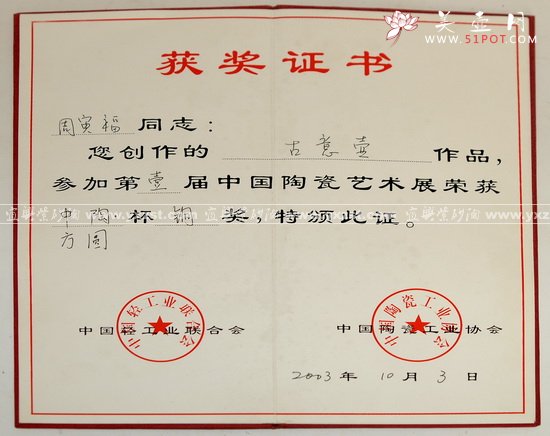 美壶网
www.51POT.COM
获奖证书
周寅福 同志：
您创作的 古意壶 作品，
参加第 壹 届中国陶瓷艺术展荣获
中陶 杯 铜 奖，特颁此证。
方圆
中国轻工业联合会
中国陶瓷工业协会
中国轻工业联合会
中国陶瓷工业协会
2003年 10月 3日